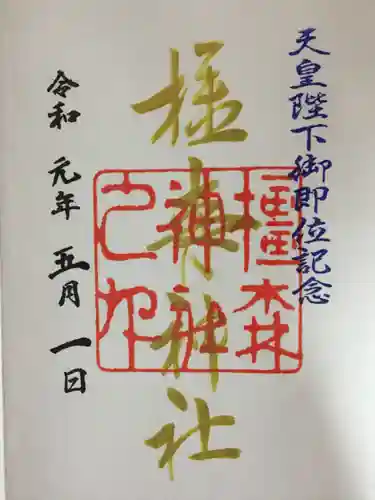 天皇陛下御即位記念
橿森神社
橿森
神社
之印
令和元年五月一日